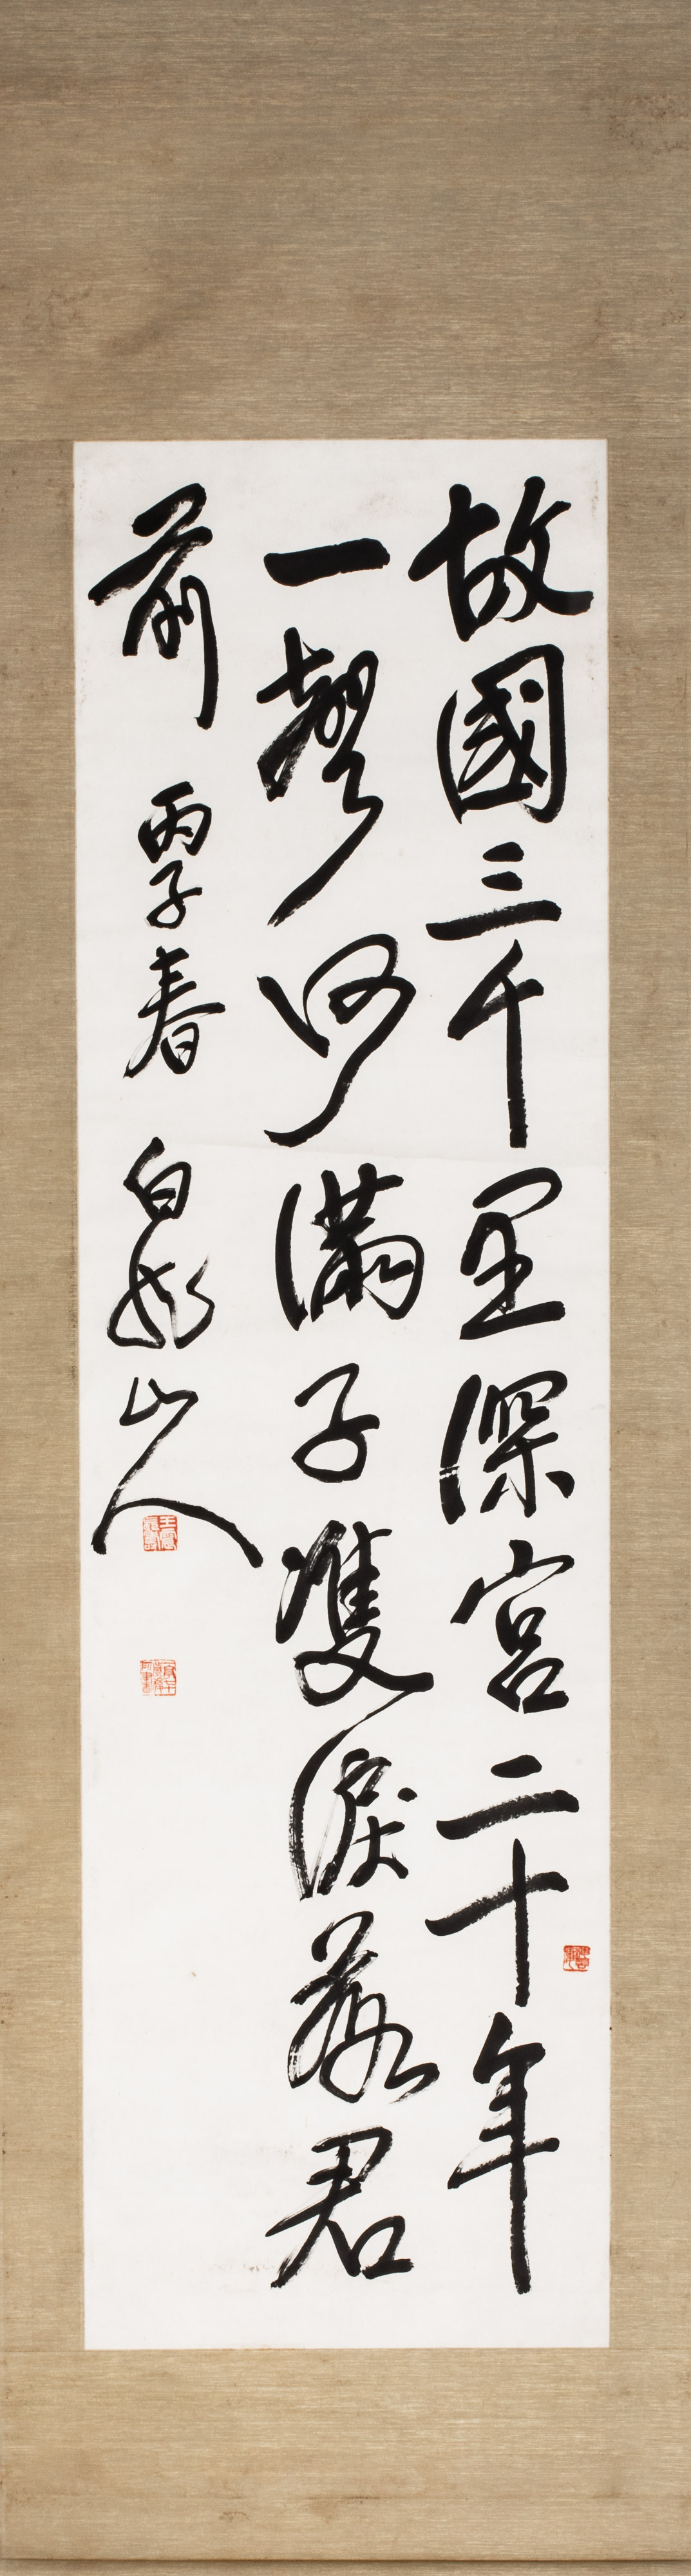 故國三千里深宮二十年
一聲何滿子雙淚落君
前 丙子春 白龍山人
王震